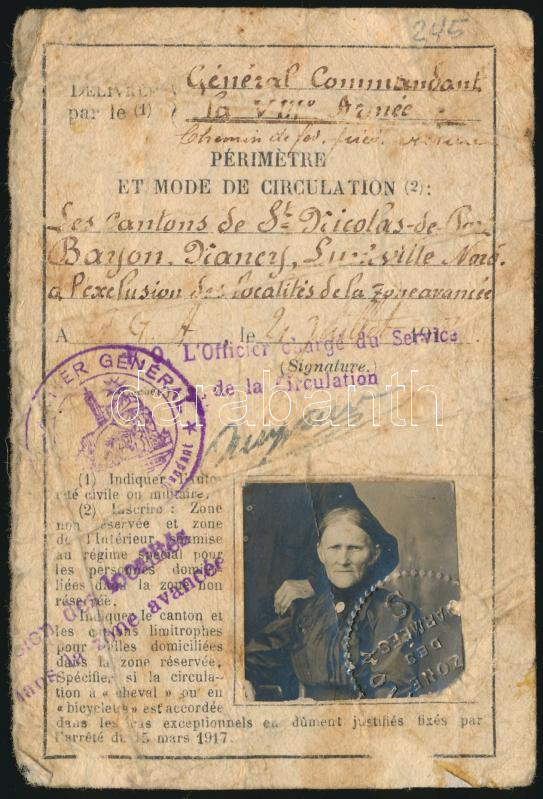 245
DÉLIVRÉE Général Commandant
par le (1) la VIIIe Armée
Chemin de fer
PÉRIMÈTRE
ET MODE DE CIRCULATION (2):
Les cantons de St Nicolas-de-Port
Bayon, Nancy, Lunéville Nord.
a l'exclusion des localités de la zone avancée
A G. A , le 2 Juillet 191
P. O. L'Officier chargé du Service
(Signature.)
de la Circulation
QUARTIER GÉNÉRAL
darabanth
(1) Indiquer l'auto-
rité civile ou militaire.
(2) Inscrire : Zone
non réservée et zone
de l'Intérieur soumise
au régime spécial pour
les personnes domici-
liées dans la zone non
réservée.
Indiquer le canton et
les cantons limitrophes
pour celles domiciliées
dans la zone réservée.
Spécifier si la circula-
tion à « cheval » ou en
« bicyclette » est accordée
dans les cas exceptionnels et dûment justifiés fixés par
l'arrêté du 15 mars 1917.
des localités
dans la zone avancée
ZONE DES ARMÉES